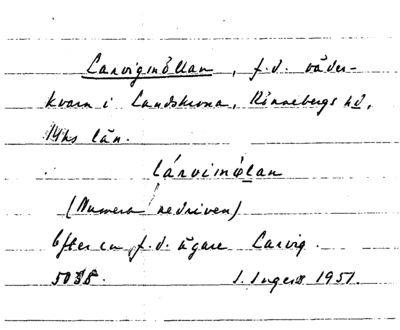 Larvigmöllan, f.d. väder-
kvarn i Landskrona, Rönnebergs hd,
Mhs län.
lárvimø̀lan
(Numera nedriven)
Efter en f.d. ägare Larvig.
5038. I. Ingers 1951.